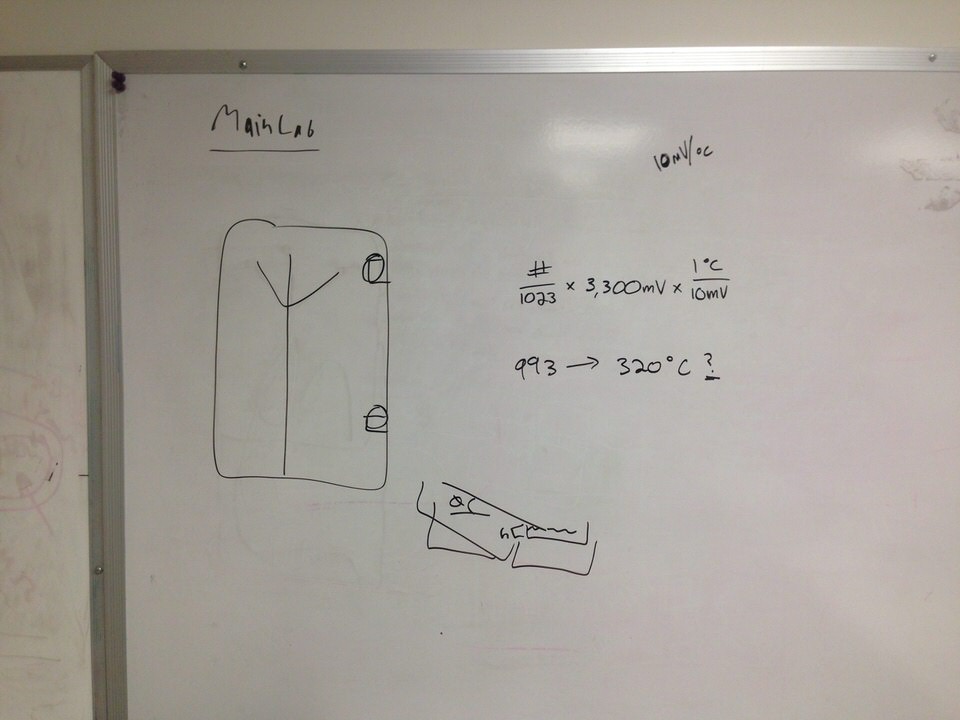 MainLab
10mV/°C
#/1023 × 3,300mV × 1°C/10mV
993 → 320°C ?